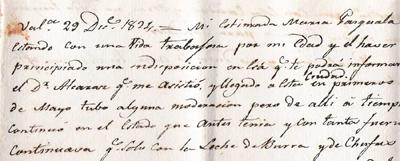 Valpª 29 Dicᵉ 1824 — Mi estimada Maria Pasquala
estando con una Vida trabajosa por mi Edad y el haver
principiado una indisposicion en esa qᵉ te podrá informar
el Dʳ Alcazar qᵉ me asistió, y llegado a esta Ciudad en primeros
de Mayo tubo alguna moderacion pero de alli a tiempo
continuó en el Estado que antes tenia y con tanta fuerza
continuava qᵉ solo con la Leche de Burra y de